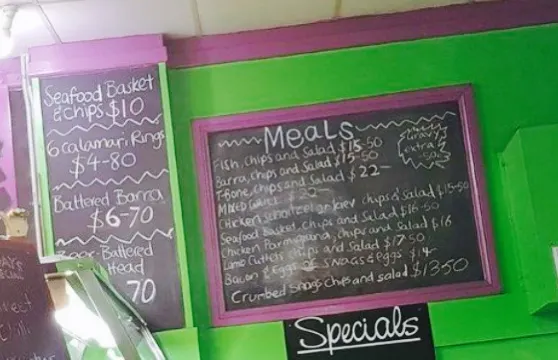 Seafood Basket
& chips $10
6 Calamari Rings
$4-80
Battered Barra
$6-70
Beer-Battered
70
Meals
Fish, Chips and Salad $15-50
Barra, chips and Salad $15-50
T-Bone, Chips and Salad $22-
Mixed Grill $22-
Chicken schnitzel or kiev chips & Salad $15-50
Seafood Basket, Chips and Salad $16-50
Chicken Parmigiana, Chips and Salad $16
Lamb Cutlets Chips and Salad $17-50
Bacon & Eggs or Snags & Eggs $14-
Crumbed Snags Chips and salad $1350
Gravy
extra
-50-
Specials